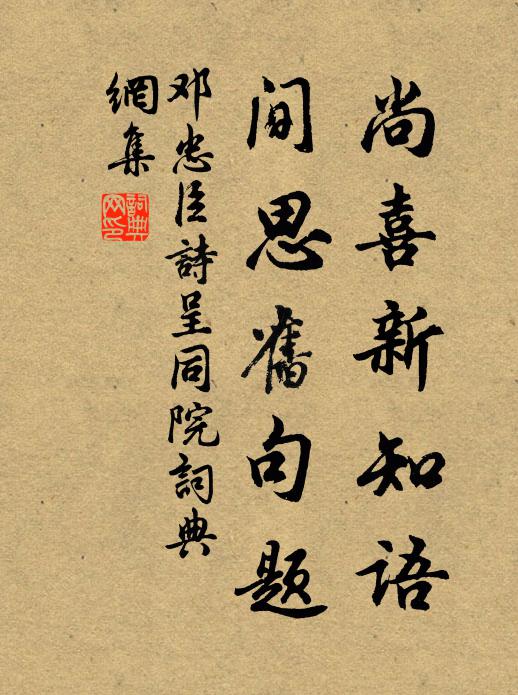 尚喜新知语
间思舊句题
邓忠臣詩呈同院詞典
網集
詞典
网印